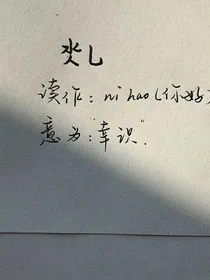 读作：ni hao(你好
意为："幸识"